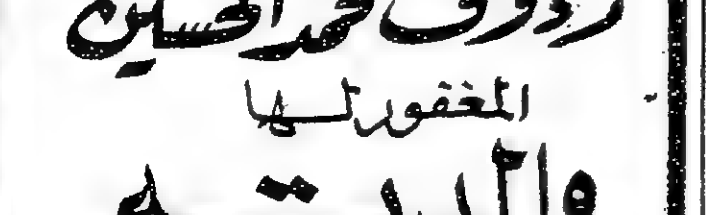 رؤوف محمد الحسين
المغفور لها
والدته